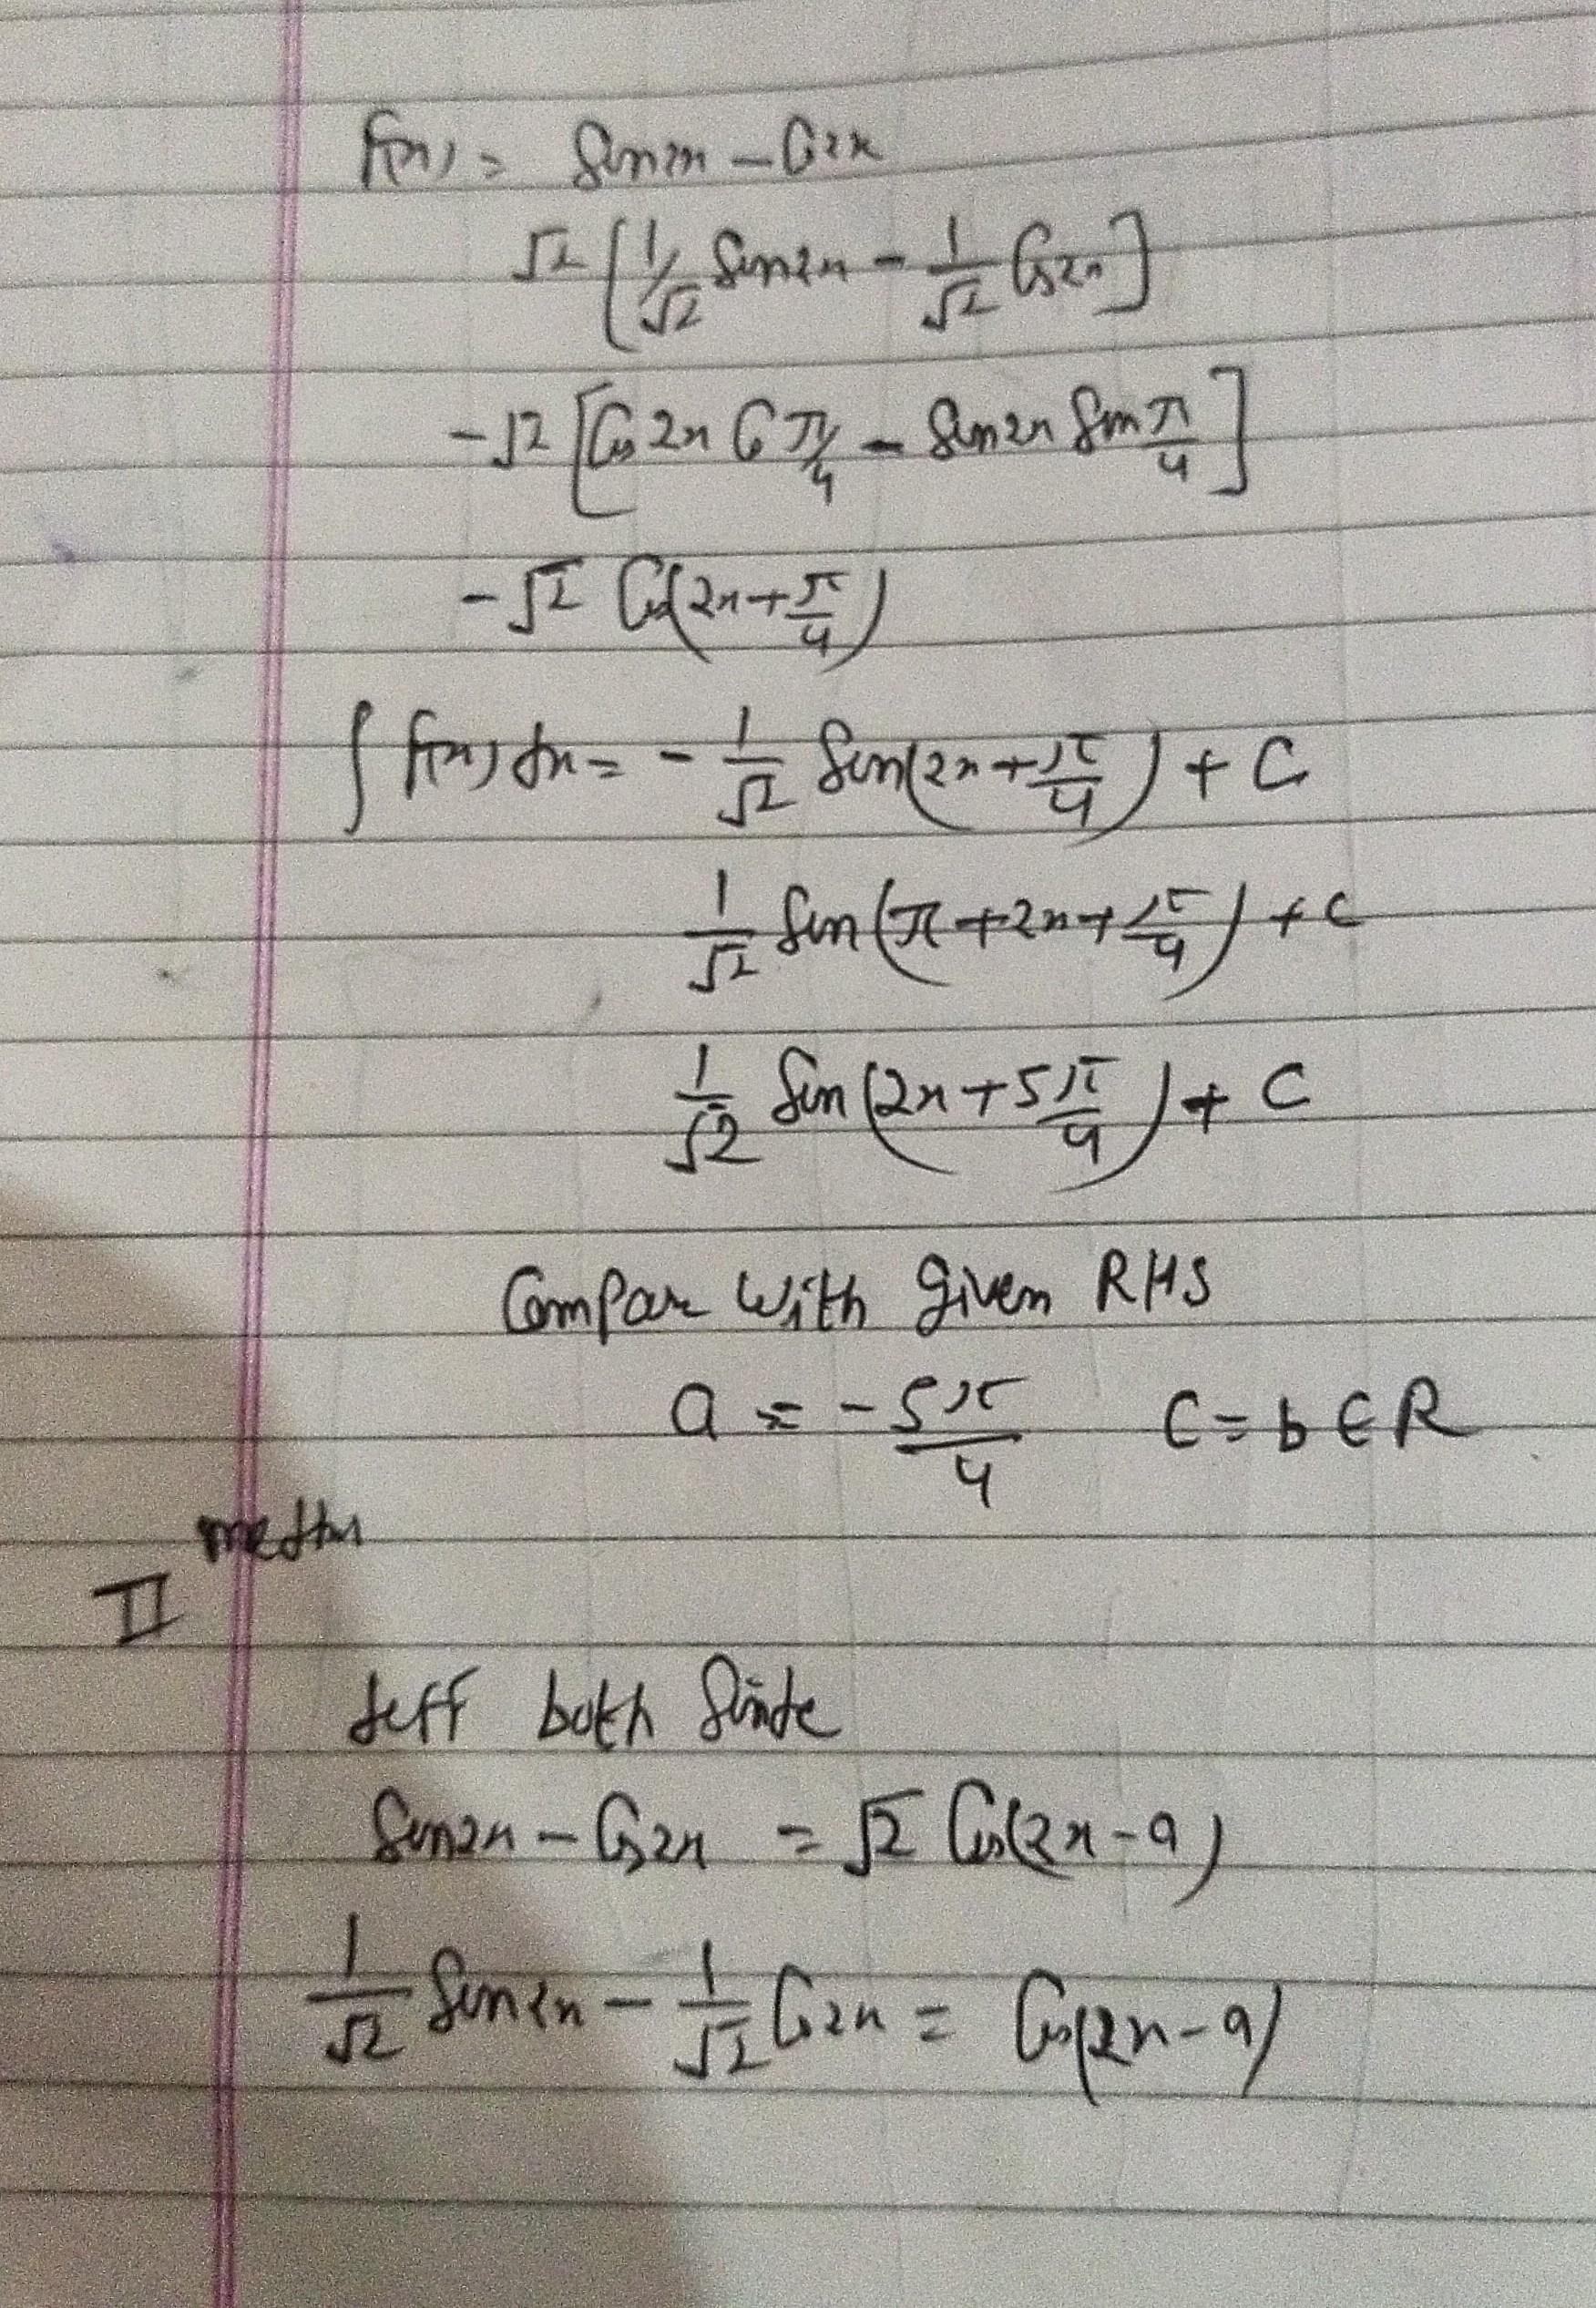 f(x) = Sin2x - Cos2x
√2 [1/√2 Sin2x - 1/√2 Cos2x]
-√2 [Cos 2x Cos π/4 - Sin2x Sin π/4]
-√2 Cos(2x + π/4)
∫ f(x) dx = - 1/√2 Sin(2x + π/4) + C
1/√2 Sin(π + 2x + π/4) + C
1/√2 Sin(2x + 5π/4) + C
Compare with given RHS
a = - 5π/4 C = b ∈ R
II method
diff both Side
Sin2x - Cos2x = √2 Cos(2x - a)
1/√2 Sin2x - 1/√2 Cos2x = Cos(2x - a)